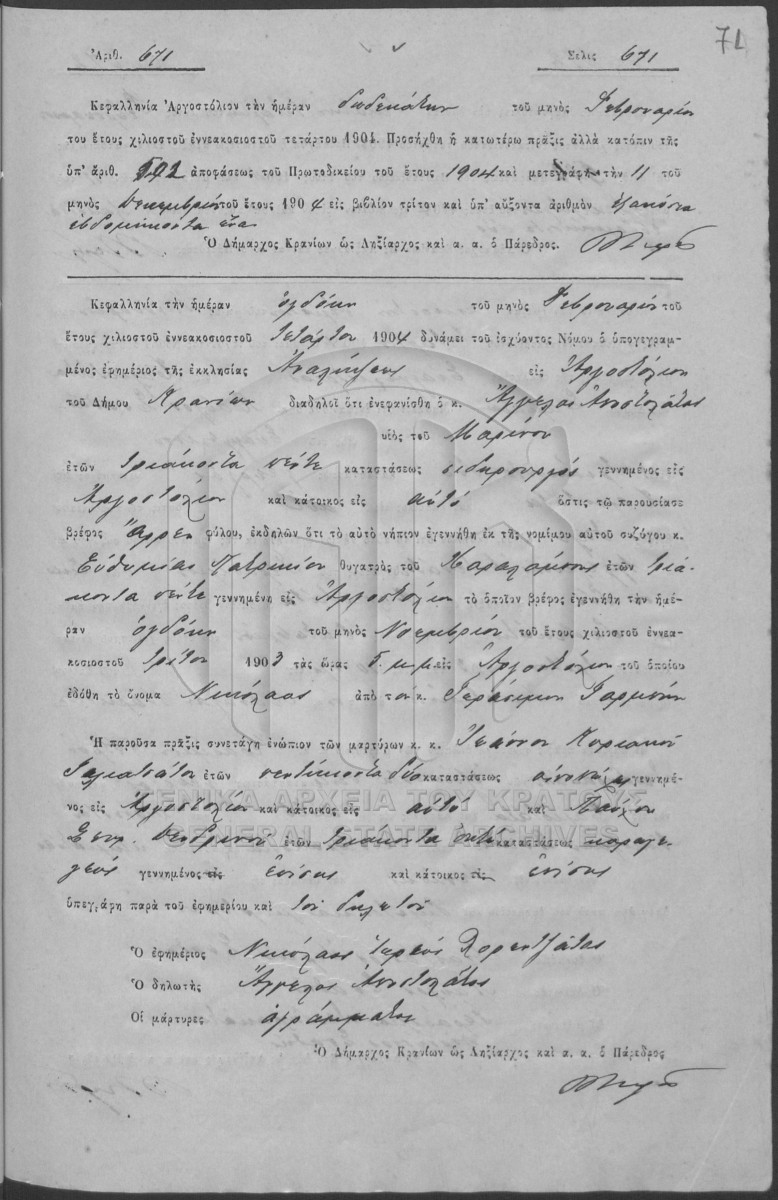 Ἀριθ. 671 Σελὶς 671 71
Κεφαλληνία Ἀργοστόλιον τὴν ἡμέραν δωδεκάτην τοῦ μηνὸς Φεβρουαρίου
του ἔτους χιλιοστοῦ ἐννεακοσιοστοῦ τετάρτου 1904. Προσήχθη ἡ κατωτέρω πρᾶξις ἀλλὰ κατόπιν τῆς
ὑπ' ἀριθ. ἀποφάσεως τοῦ Πρωτοδικείου τοῦ ἔτους 1904 καὶ μετεγράφη τὴν 11 τοῦ
μηνὸς Δεκεμβρίου τοῦ ἔτους 1904 εἰς βιβλίον τρίτον καὶ ὑπ' αὔξοντα ἀριθμὸν ἑξακόσια
ἑβδομήκοντα ἕνα
Ὁ Δήμαρχος Κρανίων ὡς Ληξίαρχος καὶ α. α. ὁ Πάρεδρος.
Κεφαλληνία τὴν ἡμέραν ὀγδόην τοῦ μηνὸς Φεβρουαρίου τοῦ
ἔτους χιλιοστοῦ ἐννεακοσιοστοῦ τετάρτου 1904 δυνάμει τοῦ ἰσχύοντος Νόμου ὁ ὑπογεγραμ-
μένος ἐφημέριος τῆς ἐκκλησίας Ἀναλήψεως εἰς Ἀργοστόλιον
τοῦ Δήμου Κρανίων διαδηλοῖ ὅτι ἐνεφανίσθη ὁ κ. Ἄγγελος Ἀποστολάτος
υἱὸς τοῦ Μαρίνου
ἐτῶν τριάκοντα πέντε καταστάσεως σιδηρουργός γεννημένος εἰς
Ἀργοστόλιον καὶ κάτοικος εἰς αὐτό ὅστις τῷ παρουσίασε
βρέφος ἄρρεν φύλου, ἐκδηλῶν ὅτι τὸ αὐτὸ νήπιον ἐγεννήθη ἐκ τῆς νομίμου αὐτοῦ συζύγου κ.
Εὐθυμίας Πατρικίου θυγατρὸς τοῦ Χαραλάμπους ἐτῶν τριά-
κοντα πέντε γεννημένη εἰς Ἀργοστόλιον τὸ ὁποῖον βρέφος ἐγεννήθη τὴν ἡμέ-
ραν ὀγδόην τοῦ μηνὸς Νοεμβρίου τοῦ ἔτους χιλιοστοῦ ἐννεα-
κοσιοστοῦ τρίτου 1903 τὰς ὥρας 5 μ.μ. εἰς Ἀργοστόλιον τοῦ ὁποίου
ἐδόθη τὸ ὄνομα Νικόλαος ἀπὸ τὸν κ. Γεράσιμον
Ἡ παροῦσα πρᾶξις συνετάγη ἐνώπιον τῶν μαρτύρων κ. κ. Ἰωάννου Κυριακοῦ
Γαλιατσάτου ἐτῶν πεντήκοντα δύο καταστάσεως γεννημέ-
νος εἰς Ἀργοστόλιον καὶ κάτοικος εἰς αὐτό καὶ Παύλου
Σπυρ. Δενδρινοῦ ἐτῶν τριάκοντα ὀκτώ καταστάσεως
γεννημένος εἰς ἐπίσης καὶ κάτοικος εἰς ἐπίσης
ὑπεγράφη παρὰ τοῦ ἐφημερίου καὶ τοῦ δηλωτοῦ
Ὁ ἐφημέριος Νικόλαος ἱερεύς Λορεντζάτος
Ὁ δηλωτὴς Ἄγγελος Ἀποστολάτος
Οἱ μάρτυρες ἀγράμματοι
Ὁ Δήμαρχος Κρανίων ὡς Ληξίαρχος καὶ α. α. ὁ Πάρεδρος
ΓΕΝΙΚΑ ΑΡΧΕΙΑ ΤΟΥ ΚΡΑΤΟΥΣ
GENERAL STATE ARCHIVES